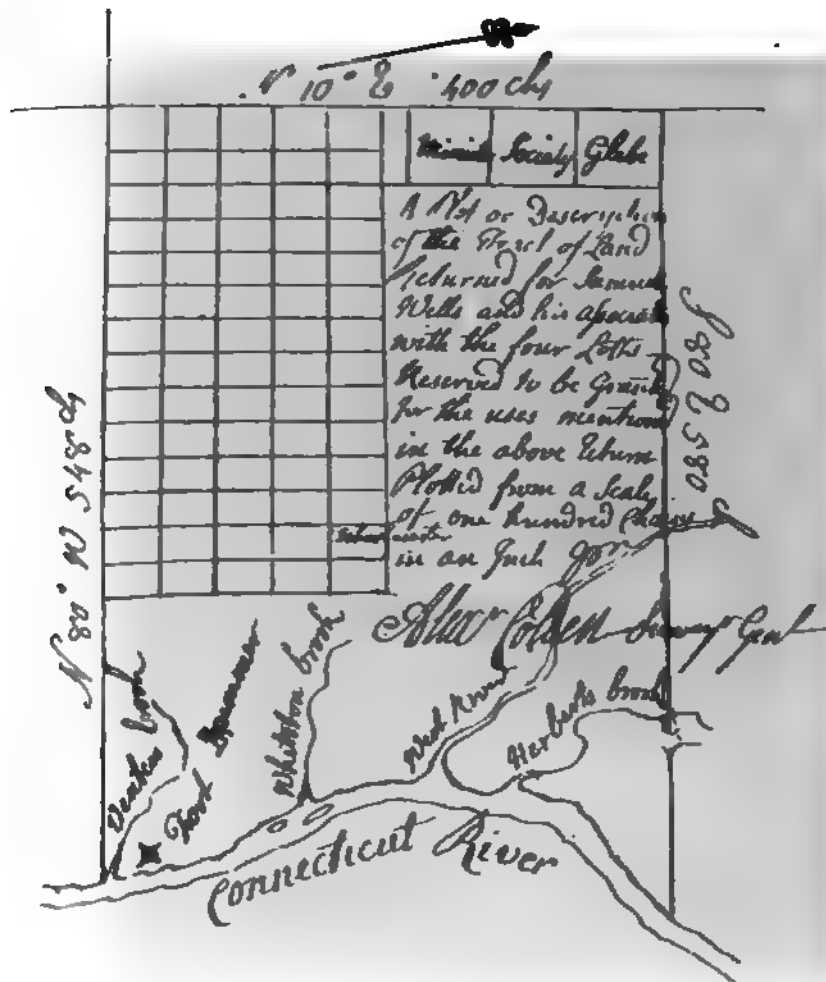 N 10° E 400 chs
Minist Society Glebe
A Plot or Description
of the Tract of Land
Returned for Samuel
Wells and his associa
with the four Lotts
Reserved to be Grante
for the uses mentiond
in the above Return
Plotted from a Scale
of one hundred Chains
in an Inch
Alexr Colden Surveyr Genl
N 80° W 548 ch
S 80 E 580
Brook
Fort Dummer
Whetston brook
West River
Herberts brook
Connecticut River